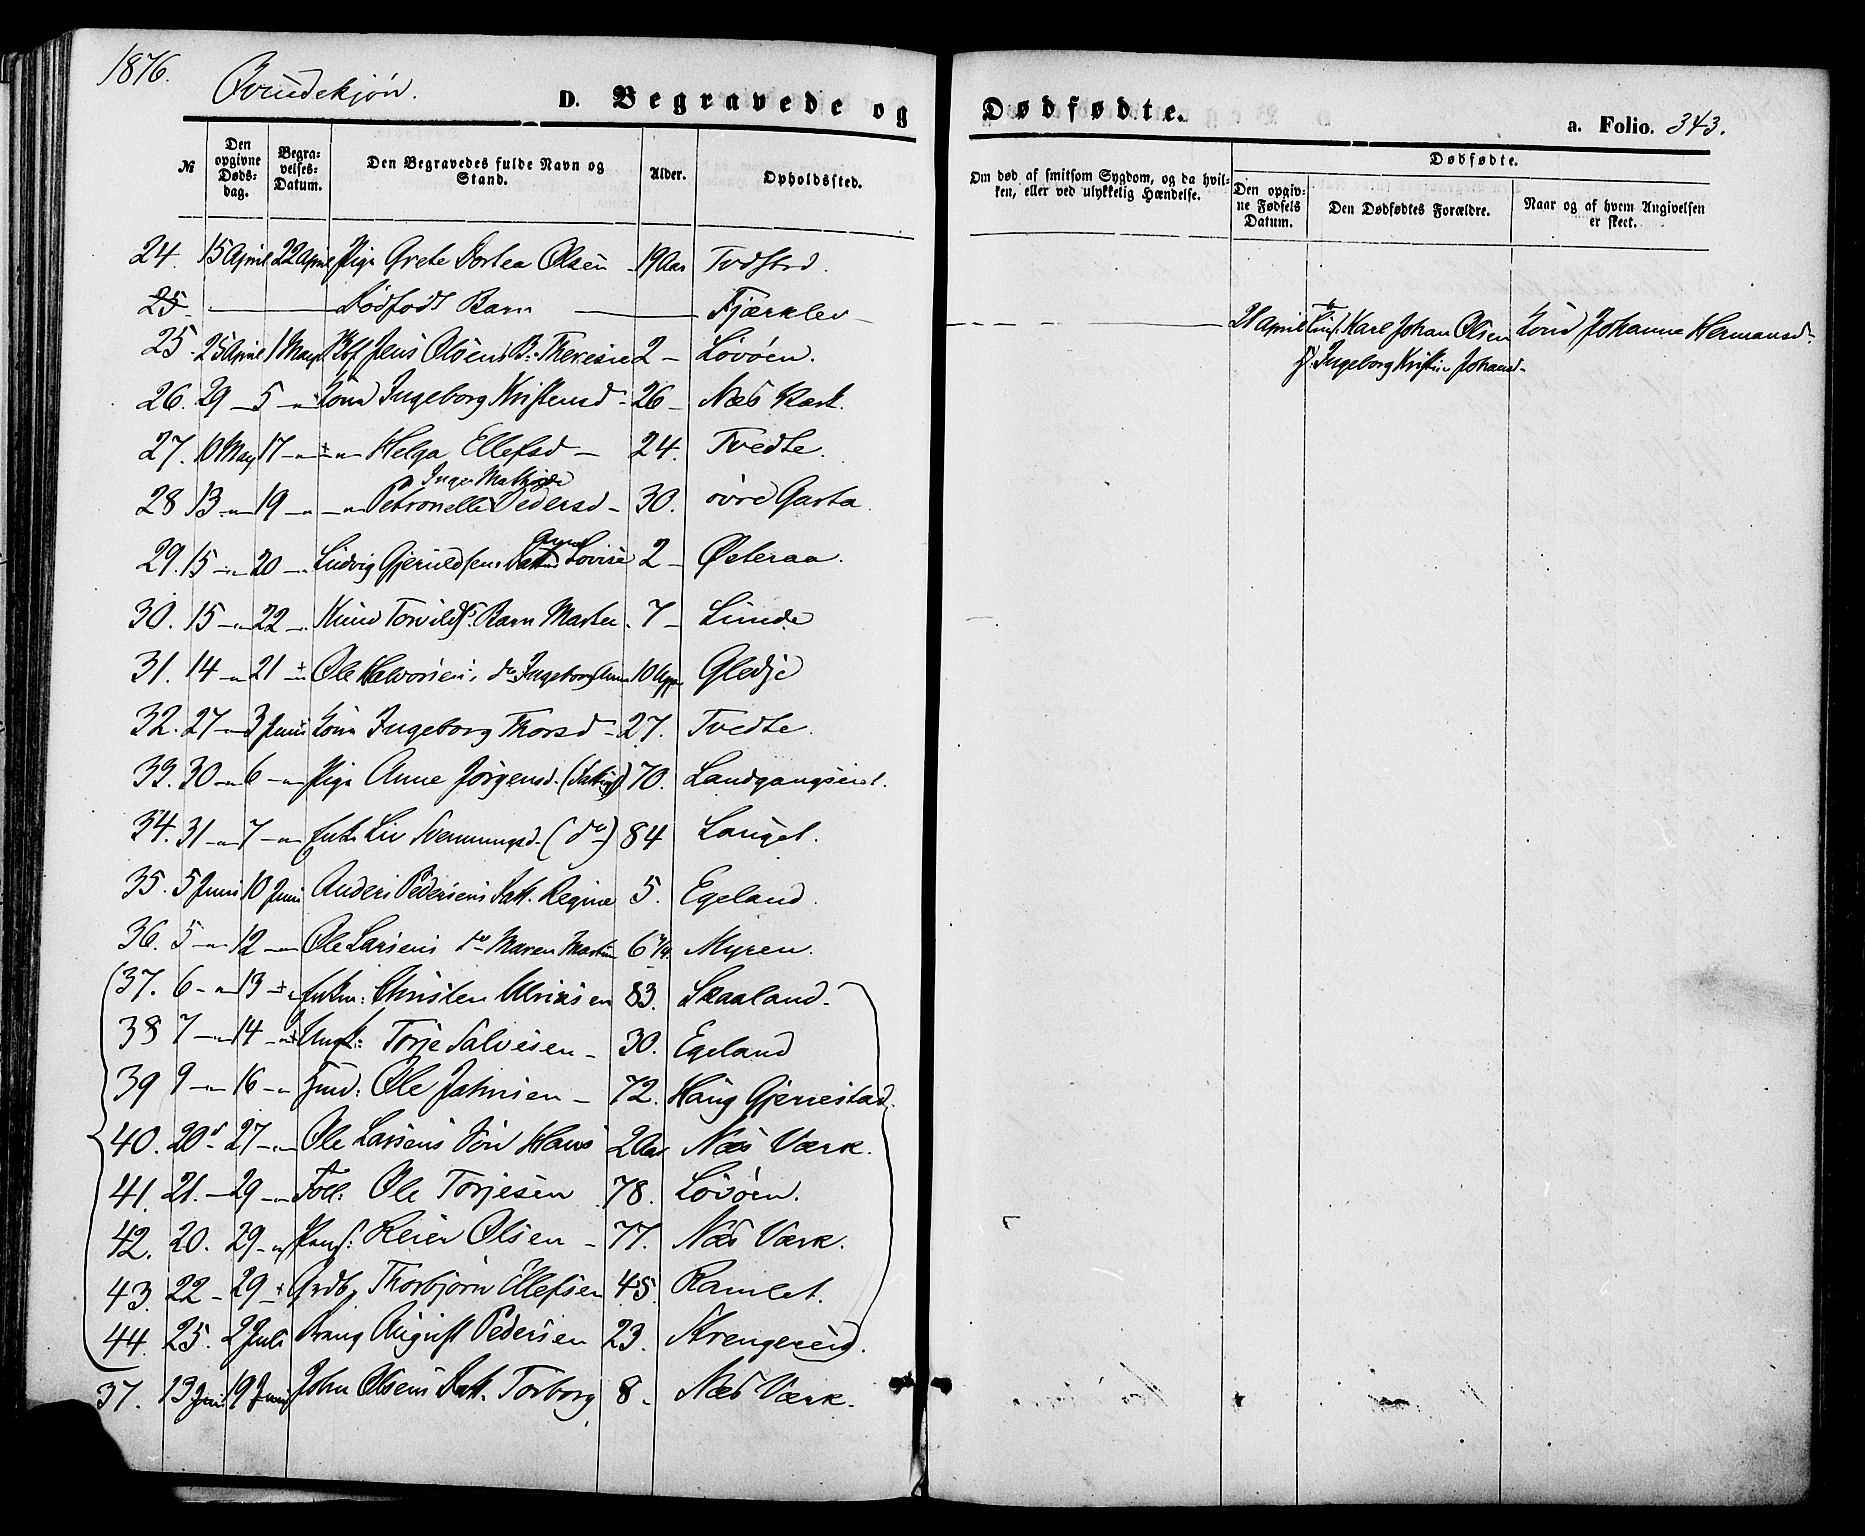 1876.
Qvindekjøn.
D. Begravede og
Dødfødte.
a. Folio. 343.
№
Den opgivne Døds-dag.
Begra-velses-Datum.
Den Begravedes fulde Navn og Stand.
Alder.
Opholdssted.
Om død af smitsom Sygdom, og da hvil-ken, eller ved ulykkelig Hændelse.
Dødfødte.
Den opgiv-ne Fødsels Datum.
Den Dødfødtes Forældre.
Naar og af hvem Angivelsen er skeet.
24. 15 April 22 April Pige Grete Dortea Olsen 19 Aar
25 — Dødfødt Barn — Fjærklev —
21 April Karl Johan Olsen Kone Johanne Hermansd.
Ingeborg Kristine Johansd.
25. 25 April 1 May Jens Olsens B: Theresie 2 — Lövöen.
26. 29 — 5 — Kone Ingeborg Kristensd — 26 — Næs Værk.
27. 10 May 17 — Helga Ellefsd — 24. Tvedte.
Inger Mathilde
28 13 — 19 — Petronelle Pedersd — 30. övre Garta
29. 15 — 20 — Ludvig Gjeruldsens Datt. Lovise 2 — Østeraa.
30. 15 — 22 — Knud Torvilds. Barn Marten. 7 — Lunde
31. 14 — 21 Ole Halvorsens do Ingeborg Anna 10 Gledje
32. 27 — 3 Juni Kone Ingeborg Thorsd — 27. Tvedte.
33. 30 — 6 — Pige Anne Jörgensd. 70. Landgangseiet.
34. 31 — 7 — Enk. Liv Svenungsd. (do) 84 Langel.
35. 5 Juni 10 Juni Anders Pedersens Datt. Regine 5. Egeland.
36. 5 — 12 — Ole Larsens do Maren Martine 6 Myren.
37. 6 — 13 Enkm: Christen Ulriksen 83. Skaaland.
38 7 — 14 — Ungk: Torje Salvesen — 30. Egeland
39 9 — 16 — Ole Jahnsen — 72. Haug Gjerrestad.
40. 20 27 — Ole Larsens Sön Hans 2 Aar Næs Værk.
41. 21. — 29 — Föll: Ole Torjesen 78. Lövöen.
42. 20. 29 — Reier Olsen — 77. Næs Værk.
43. 22 — 29 Grdb. Thorbjörn Ellefsen 45. Ramlet.
44. 25. 2 Juli August Pedersen 23. Strengereid.
37. 13 Juni 19 Juni John Olsens Datt. Torborg 8 — Næs Værk.